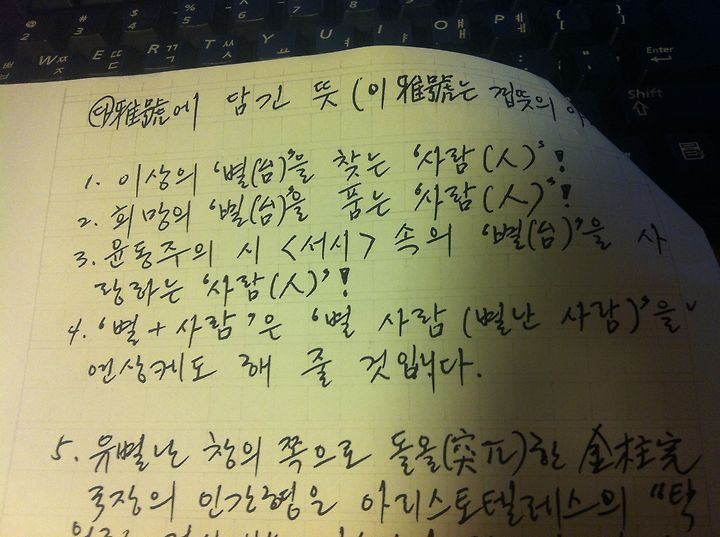 이 雅號에 담긴 뜻 (이 雅號는 겹뜻의
1. 이상의 '별(台)'을 찾는 '사람(人)'!
2. 희망의 '별(台)'을 품는 '사람(人)'!
3. 윤동주의 시 <서시> 속의 '별(台)'을 사
랑하는 '사람(人)'!
4. '별+사람'은 '별 사람(별난 사람)'을
연상케도 해 줄 것입니다.
5. 유별난 창의 쪽으로 돌올(突兀)한 金柱完
국장의 인간형은 아리스토텔레스의 "탁